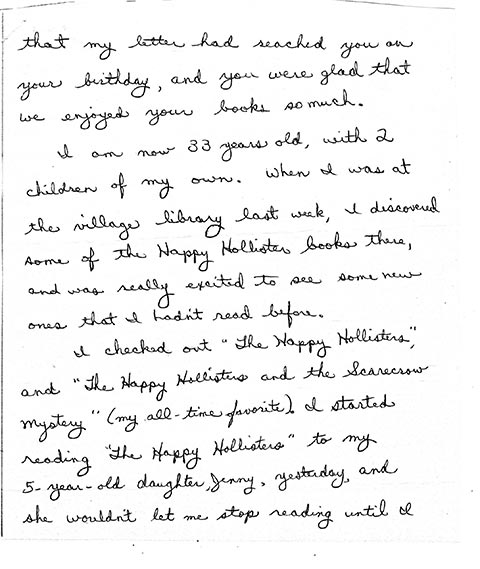 that my letter had reached you on
your birthday, and you were glad that
we enjoyed your books so much.
I am now 33 years old, with 2
children of my own. When I was at
the village library last week, I discovered
some of the Happy Hollister books there,
and was really excited to see some new
ones that I hadn't read before.
I checked out "The Happy Hollisters",
and "The Happy Hollisters and the Scarecrow
Mystery" (my all-time favorite). I started
reading "The Happy Hollisters" to my
5-year-old daughter, Jenny, yesterday, and
she wouldn't let me stop reading until I